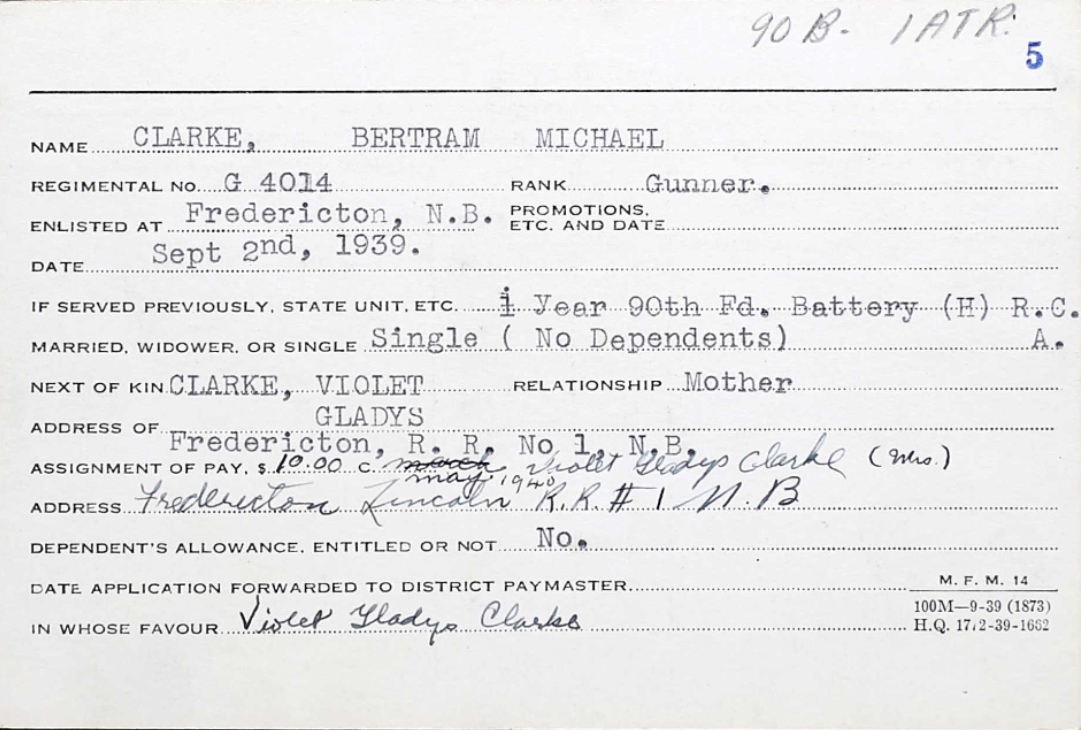 90 B. 1ATR.
5
NAME CLARKE, BERTRAM MICHAEL
REGIMENTAL NO. G 4014 RANK Gunner.
ENLISTED AT Fredericton, N.B. PROMOTIONS, ETC. AND DATE
DATE Sept 2nd, 1939.
IF SERVED PREVIOUSLY, STATE UNIT, ETC. 1 Year 90th Fd. Battery (H) R.C.
MARRIED, WIDOWER, OR SINGLE Single ( No Dependents) A.
NEXT OF KIN CLARKE, VIOLET RELATIONSHIP Mother
GLADYS
ADDRESS OF Fredericton, R. R. No 1, N.B.
ASSIGNMENT OF PAY, $ 10.00 C. march Violet Gladys Clarke (Mrs.)
may 1940
ADDRESS Fredericton Lincoln R.R. # 1 N.B
DEPENDENT'S ALLOWANCE, ENTITLED OR NOT No.
DATE APPLICATION FORWARDED TO DISTRICT PAYMASTER
IN WHOSE FAVOUR Violet Gladys Clarke
M. F. M. 14
100M—9-39 (1873)
H.Q. 1772-39-1662